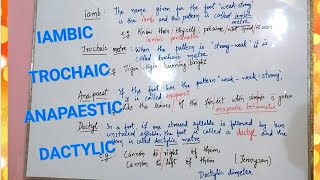 iamb: The name given for the foot "weak-strong"
is the iamb and this pattern is called iambic
metre
IAMBIC
e.g Know then thyself, presume not God to scan
iambic pentametre
Trochaic metre: When the pattern is "strong-weak" it is
called trochaic metre.
TROCHAIC
e.g Tiger! Tiger! burning bright
Anapaest: If the foot has the pattern "weak-weak-strong,
it is called anapaest
ANAPAESTIC
Like the leaves of the forest when summer is green
anapaestic tetrametre
Dactyl: In a foot, if one stressed syllable is followed by two
unstressed syllable, the foot is called a dactyl and the
is called dactylic metre
DACTYLIC
Cannon to right of them,
Cannon to left of them (Tennyson)
Dactylic dimeter